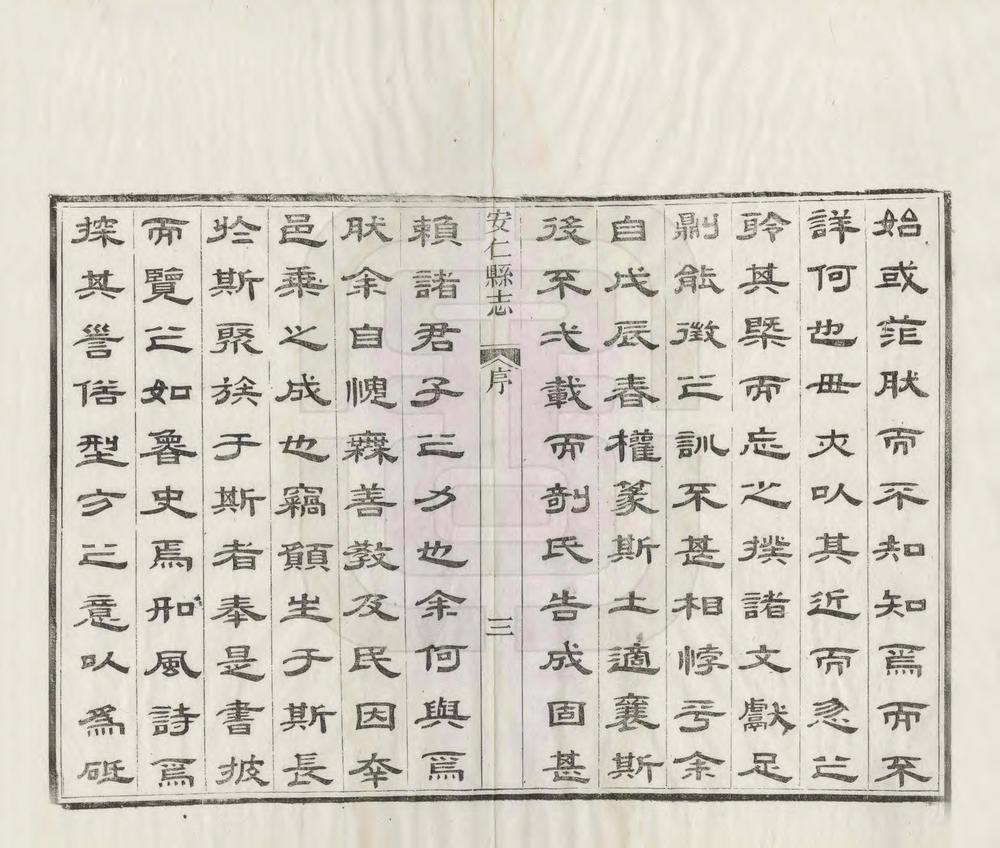 始或茫然而不知知焉而不
詳何也毋亦以其近而忽之
聆其槩而忘之撲諸文獻足
則能徵之訓不甚相悖乎余
自戊辰春權篆斯土適襄斯
後不弌載而剞氏告成固甚
安仁縣志 序 三
賴諸君子之力也余何與焉
然余自愧無善教及民因幸
邑乘之成也竊願生于斯長
於斯聚族于斯者奉是書披
而覽之如魯史焉和風詩焉
探其詧俗型方之意以為砥